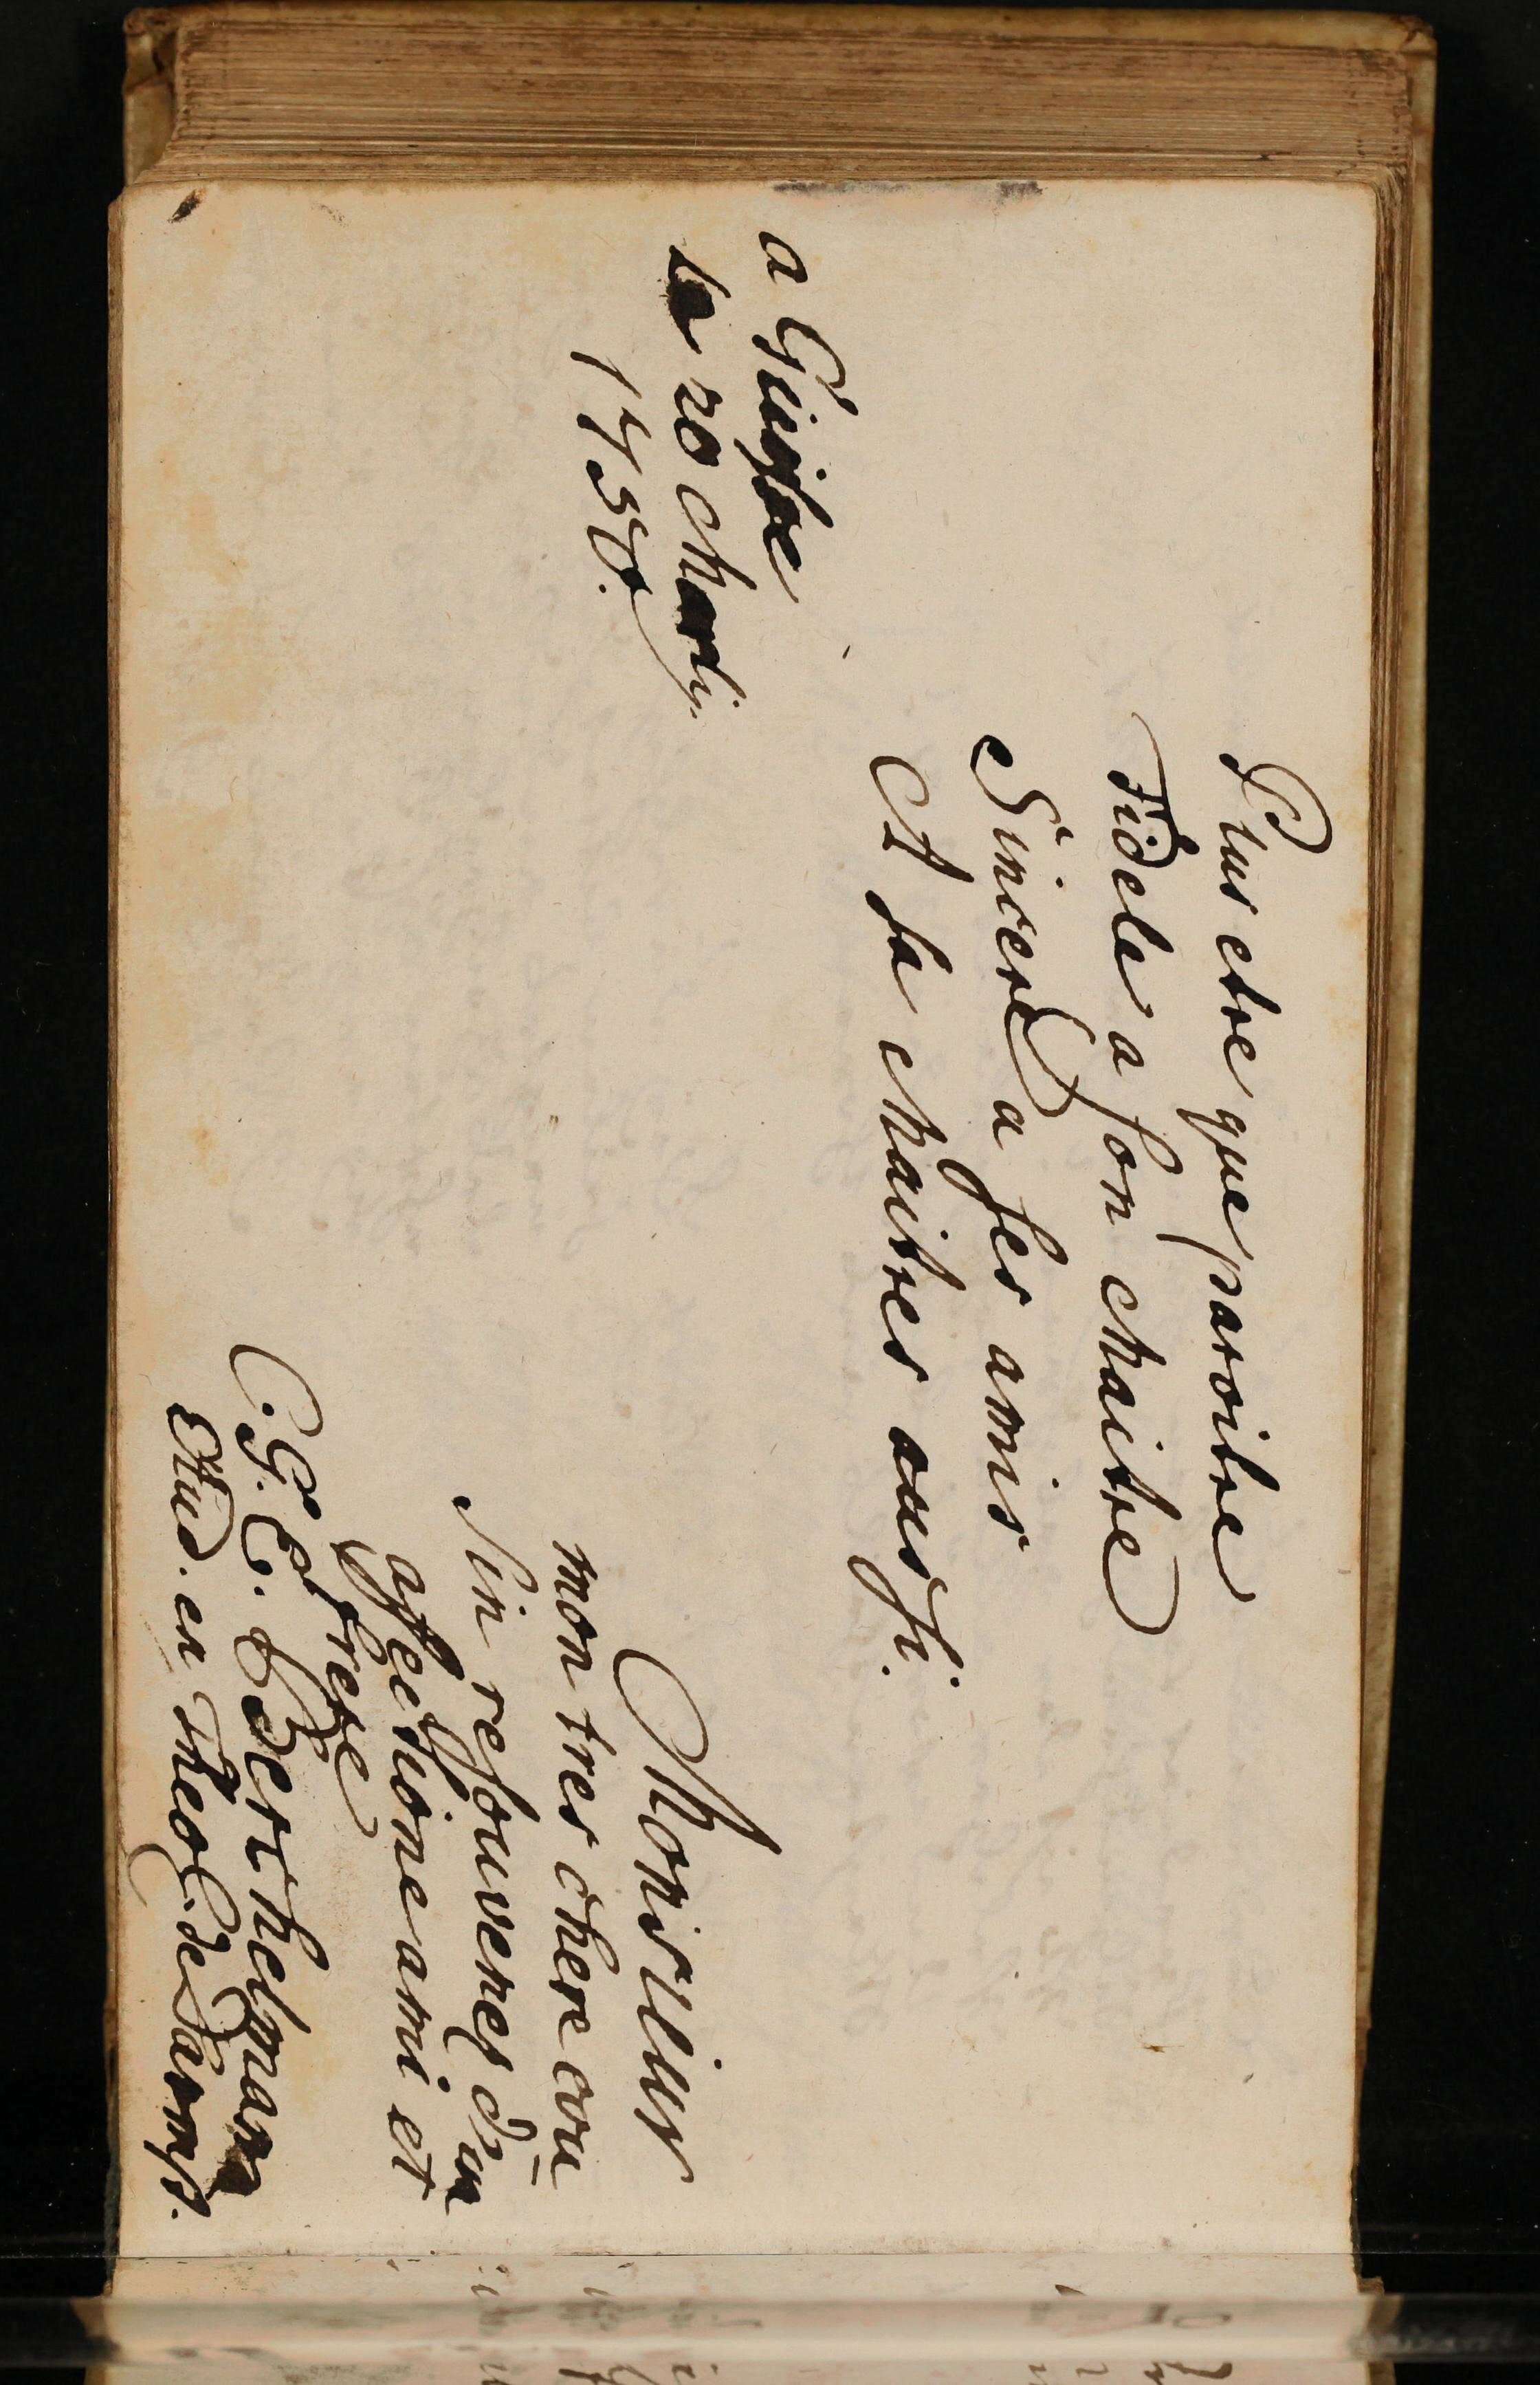 Plus etre que paroitre
Fidele a son Maitre
Sincere a ses amis
Et sa Maitres aussi.
a
le 20 Martij.
Monsieur
mon tres chere cou
sin ressouvenes d'un
affectione ami et
frere
C. G. E. Berthelmann
Stud. en Theol. de Darmst.